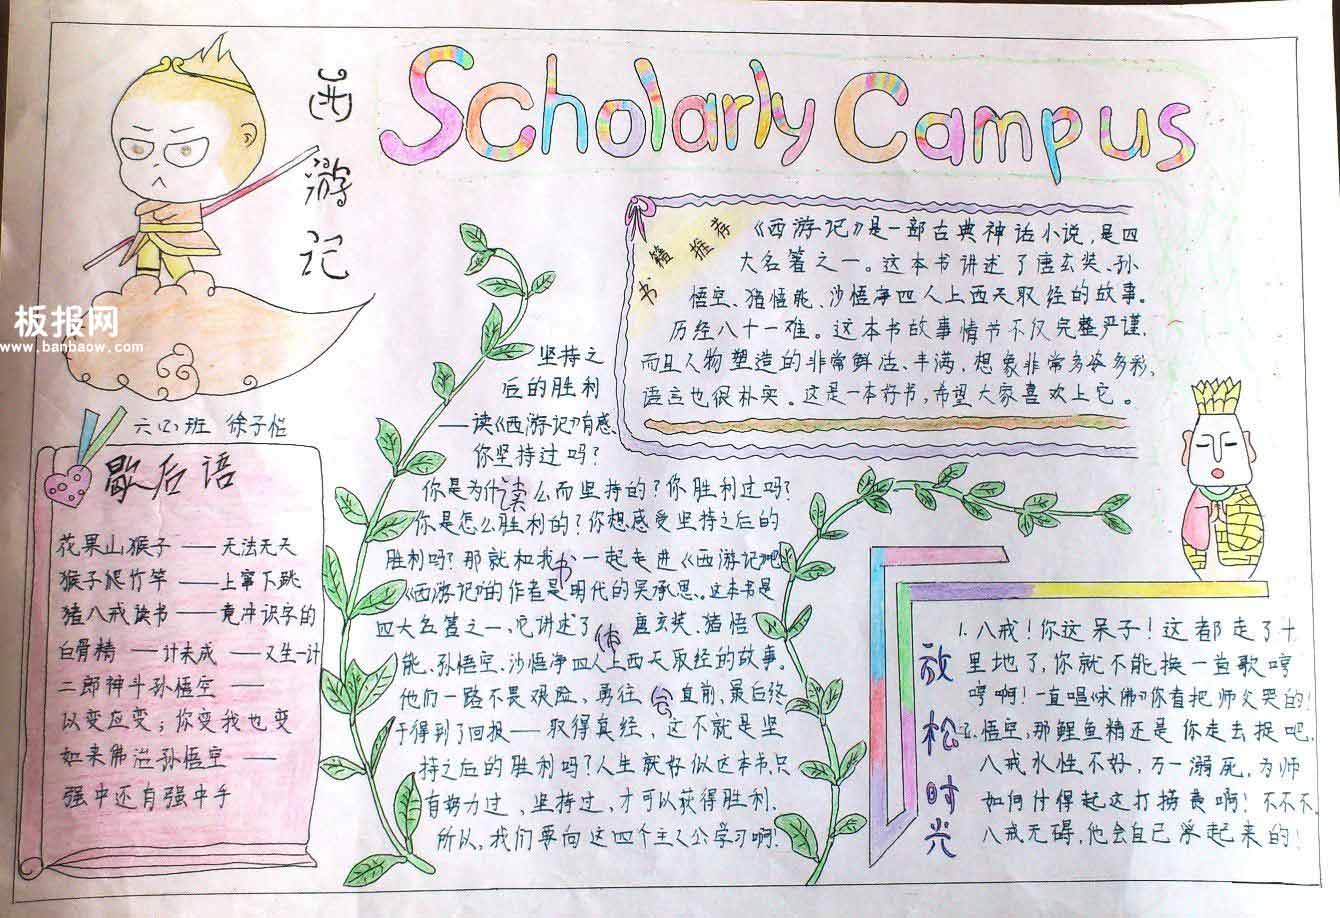 Scholarly Campus
西游记
板报网
www.banbaow.com
六(四)班 徐子恺
歇后语
花果山猴子——无法无天
猴子爬竹竿——上窜下跳
猪八戒读书——竟冲识字的
白骨精——计未成——又生一计
二郎神斗孙悟空——
以变应变；你变我也变
如来佛治孙悟空——
强中还有强中手
书籍推荐
《西游记》是一部古典神话小说，是四
大名著之一。这本书讲述了唐玄奘、孙
悟空、猪悟能、沙悟净四人上西天取经的故事。
历经八十一难。这本书故事情节不仅完整严谨，
而且人物塑造的非常鲜活、丰满，想象非常多姿多彩，
语言也很朴实。这是一本好书，希望大家喜欢上它。
坚持之
后的胜利
——读《西游记》有感
你坚持过吗？
你是为什么而坚持的？你胜利过吗？
你是怎么胜利的？你想感受坚持之后的
胜利吗？那就和我一起走进《西游记》吧
《西游记》的作者是明代的吴承恩。这本书是
四大名著之一、它讲述了唐玄奘、猪悟
能、孙悟空、沙悟净四人上西天取经的故事。
他们一路不畏艰险、勇往直前、最后终
于得到了回报——取得真经、这不就是坚
持之后的胜利吗？人生就好似这本书，只
有努力过、坚持过，才可以获得胜利．
所以，我们要向这四个主人公学习啊！
读书体会
放松时光
1. 八戒！你这呆子！这都走了十
里地了，你就不能换一首歌哼
哼啊！一直唱《求佛》你看把师父哭的！
2. 悟空，那鲤鱼精还是你走去捉吧，
八戒水性不好，万一溺死，为师
如何什得起这打捞费啊！不不不，
八戒无碍，他会自己浮起来的！